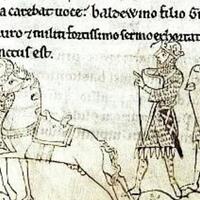 a carebat uoce: baldewino filio Gi
uro & militi fortissimo sermo exhortat
nctus est.